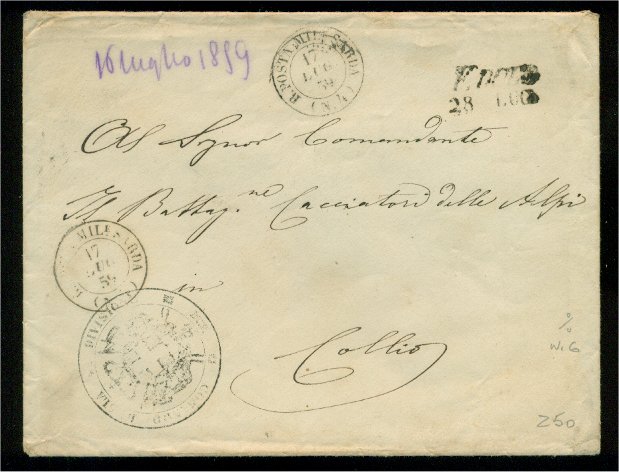 16 luglio 1859
R. POSTA MIL.E SARDA (N.
17
LUG
59
28 LUG
Al Signor Comandante
Il Battag.ne Cacciatori delle Alpi
MIL.E SARDA
17
LUG
59
in
DIVISIONE
Collio
250